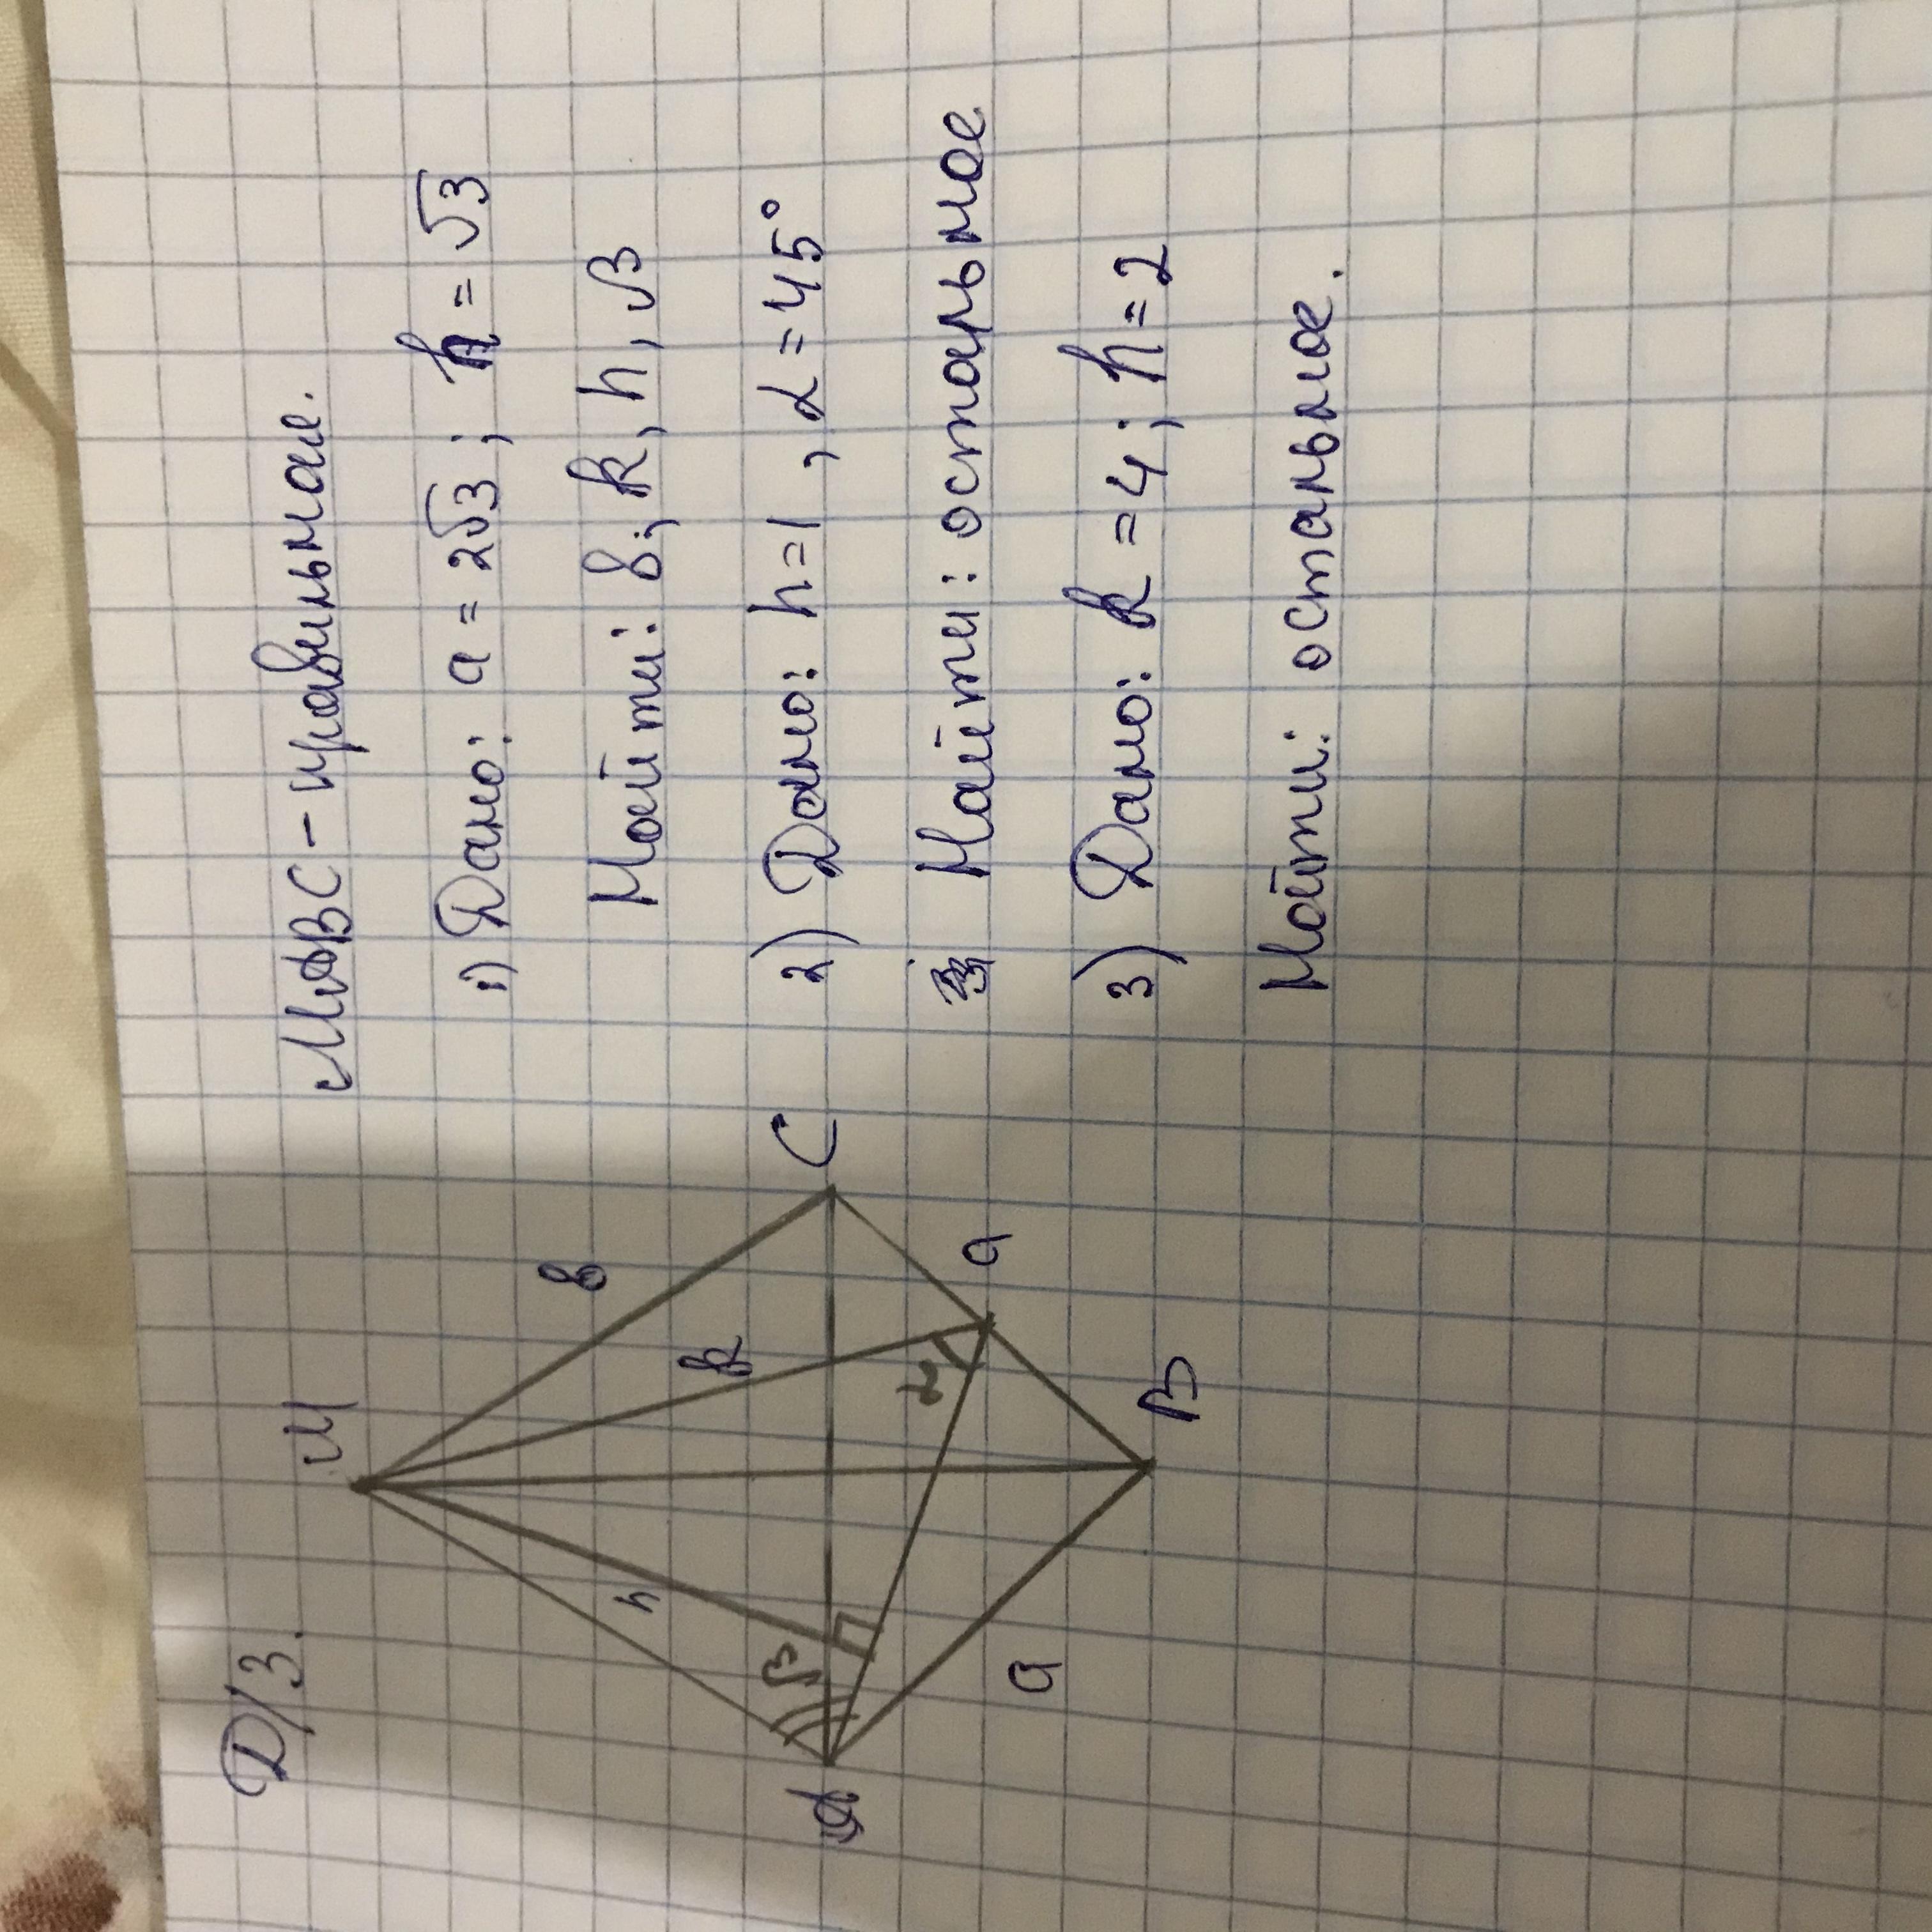 Д/З.
М
в
к
h
β
α
А
С
а
а
В
МАВС - правильная.
1) Дано: а = 2√3; h = √3
Найти: в; k, h, √3
2) Дано: h = 1, α = 45°
Найти: остальное
3) Дано: k = 4; h = 2
Найти: остальное.